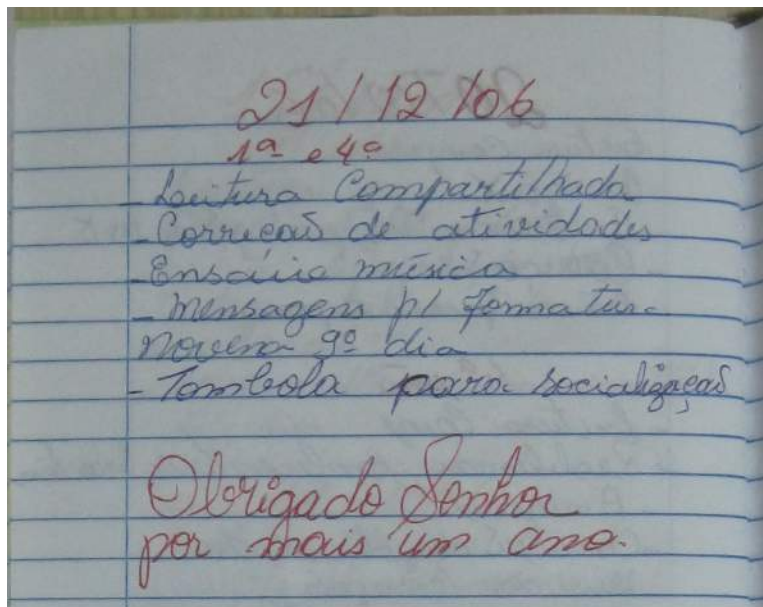 21/12/06
1ª e 4ª
- Leitura Compartilhada
- Correção de atividades
- Ensaio música
- Mensagens p/ formatur.
Novena 9º dia
- Tombola para socialização
Obrigado Senhor
por mais um ano.